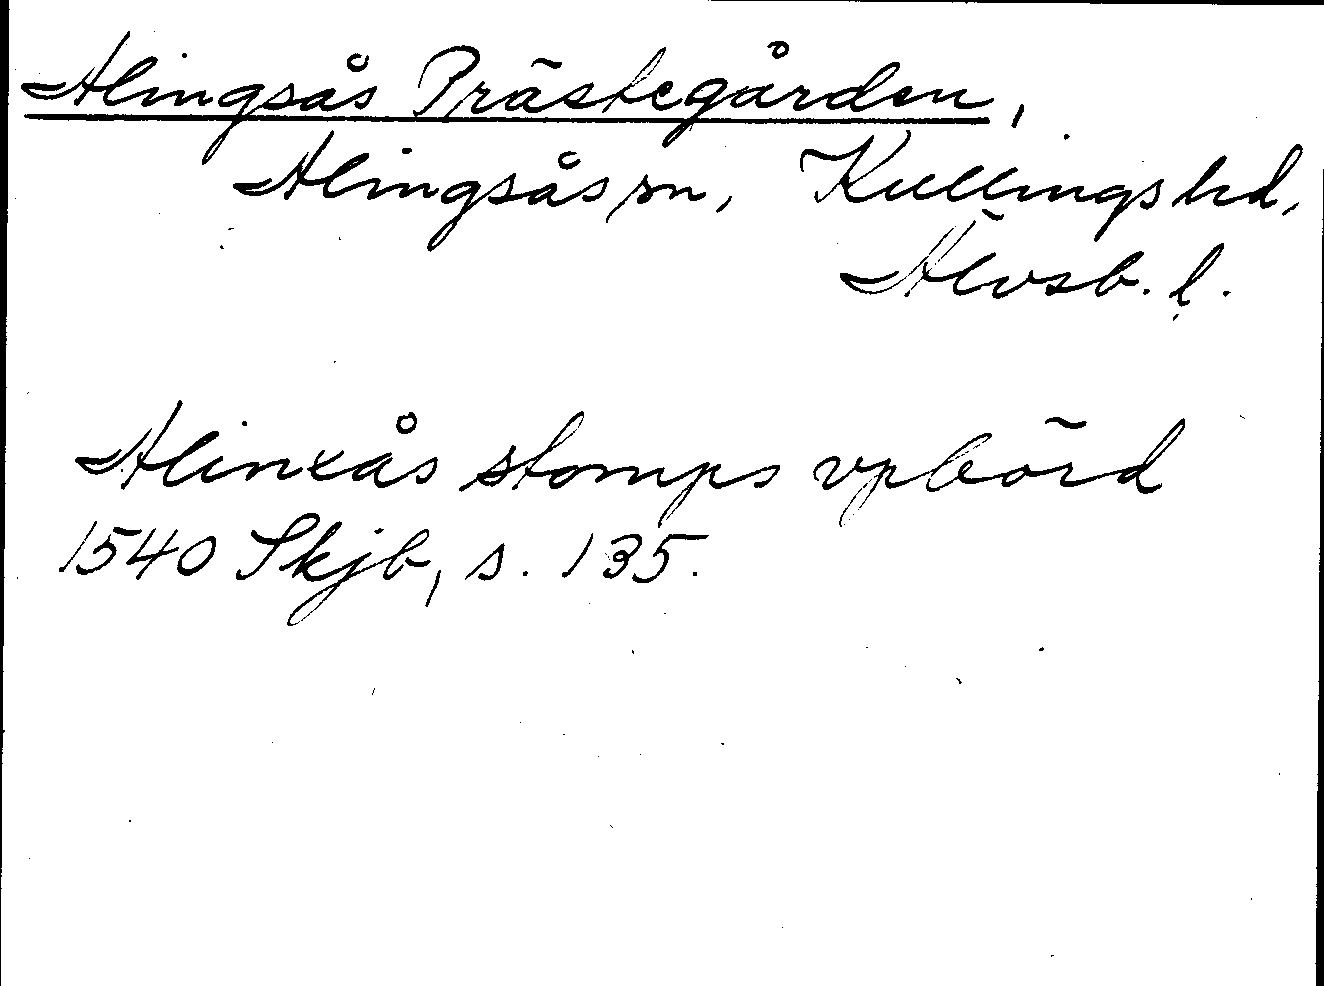 Alingsås Prästegården,
Alingsås sn, Kullings hd,
Älvsb. l.
Alinxås stomps vpbörd
1540 Skjb, s. 135.